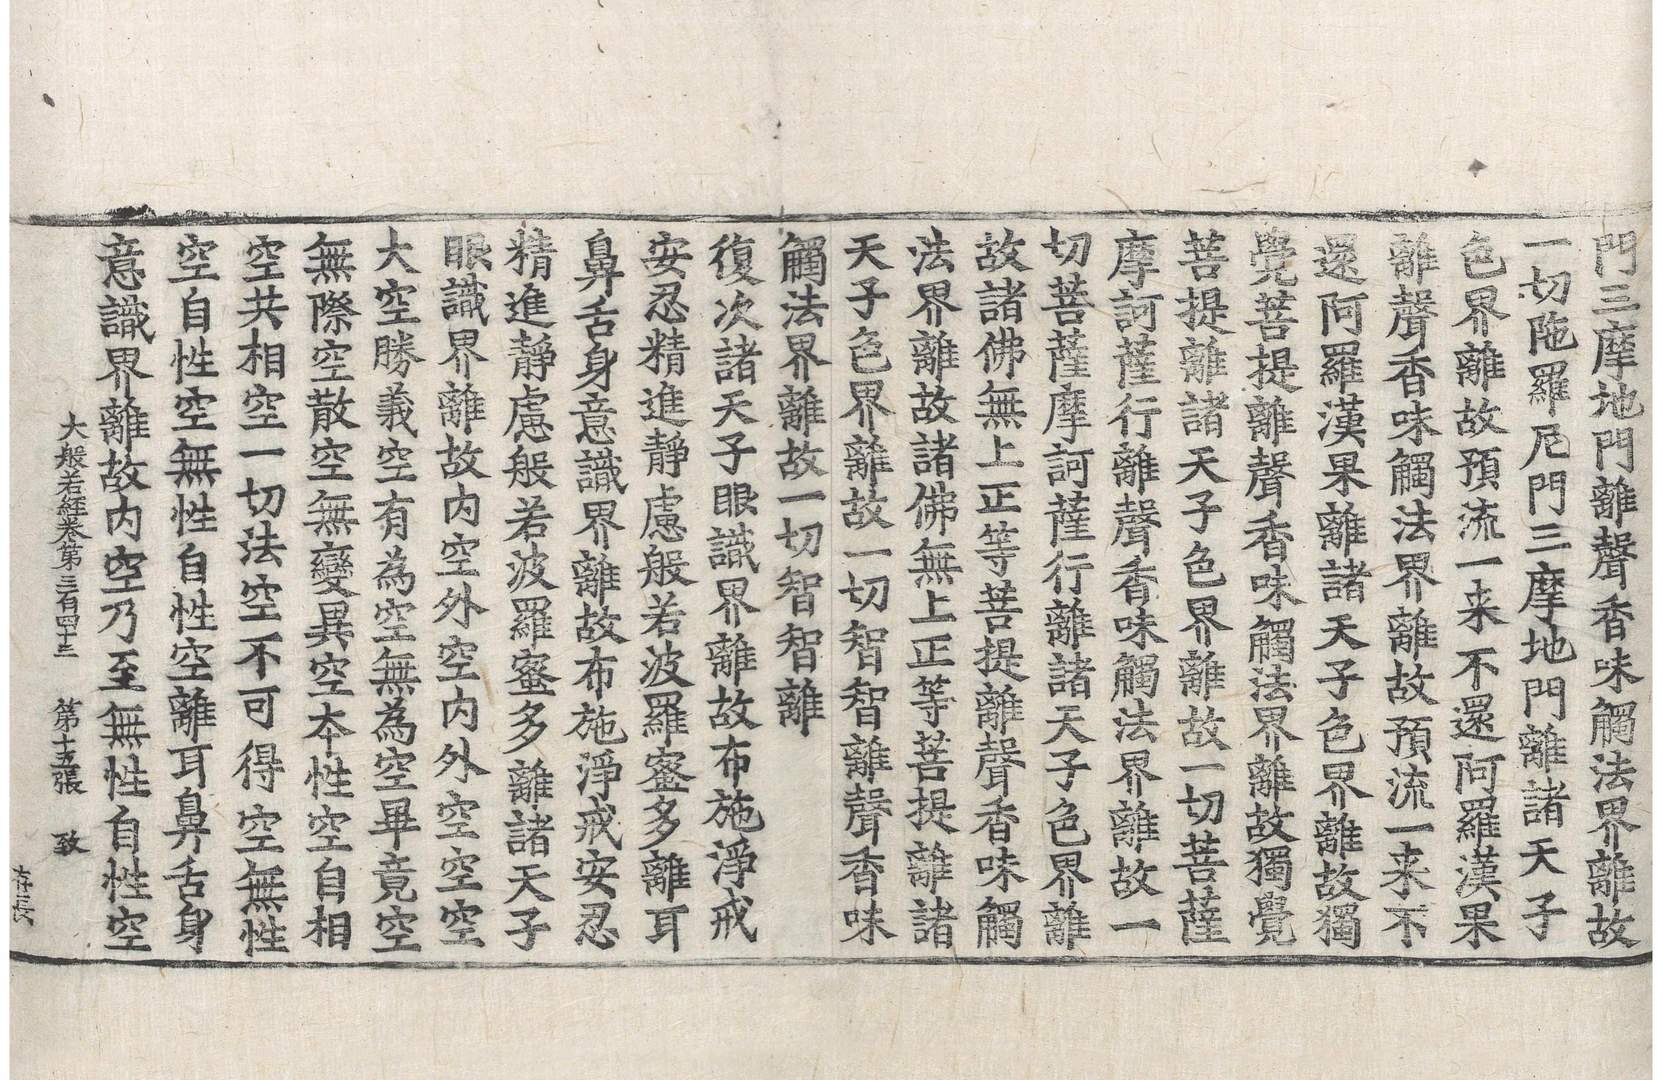 門三摩地門離聲香味觸法界離故
一切陁羅尼門三摩地門離諸天子
色界離故預流一来不還阿羅漢果
離聲香味觸法界離故預流一来不
還阿羅漢果離諸天子色界離故獨
覺菩提離聲香味觸法界離故獨覺
菩提離諸天子色界離故一切菩薩
摩訶薩行離聲香味觸法界離故一
切菩薩摩訶薩行離諸天子色界離
故諸佛無上正等菩提離聲香味觸
法界離故諸佛無上正等菩提離諸
天子色界離故一切智智離聲香味
觸法界離故一切智智離
復次諸天子眼識界離故布施淨戒
安忍精進靜慮般若波羅蜜多離耳
鼻舌身意識界離故布施淨戒安忍
精進靜慮般若波羅蜜多離諸天子
眼識界離故内空外空内外空空空
大空勝義空有為空無為空畢竟空
無際空散空無變異空本性空自相
空共相空一切法空不可得空無性
空自性空無性自性空離耳鼻舌身
意識界離故内空乃至無性自性空
大般若經卷第三百四十三 第十五張 致
存長